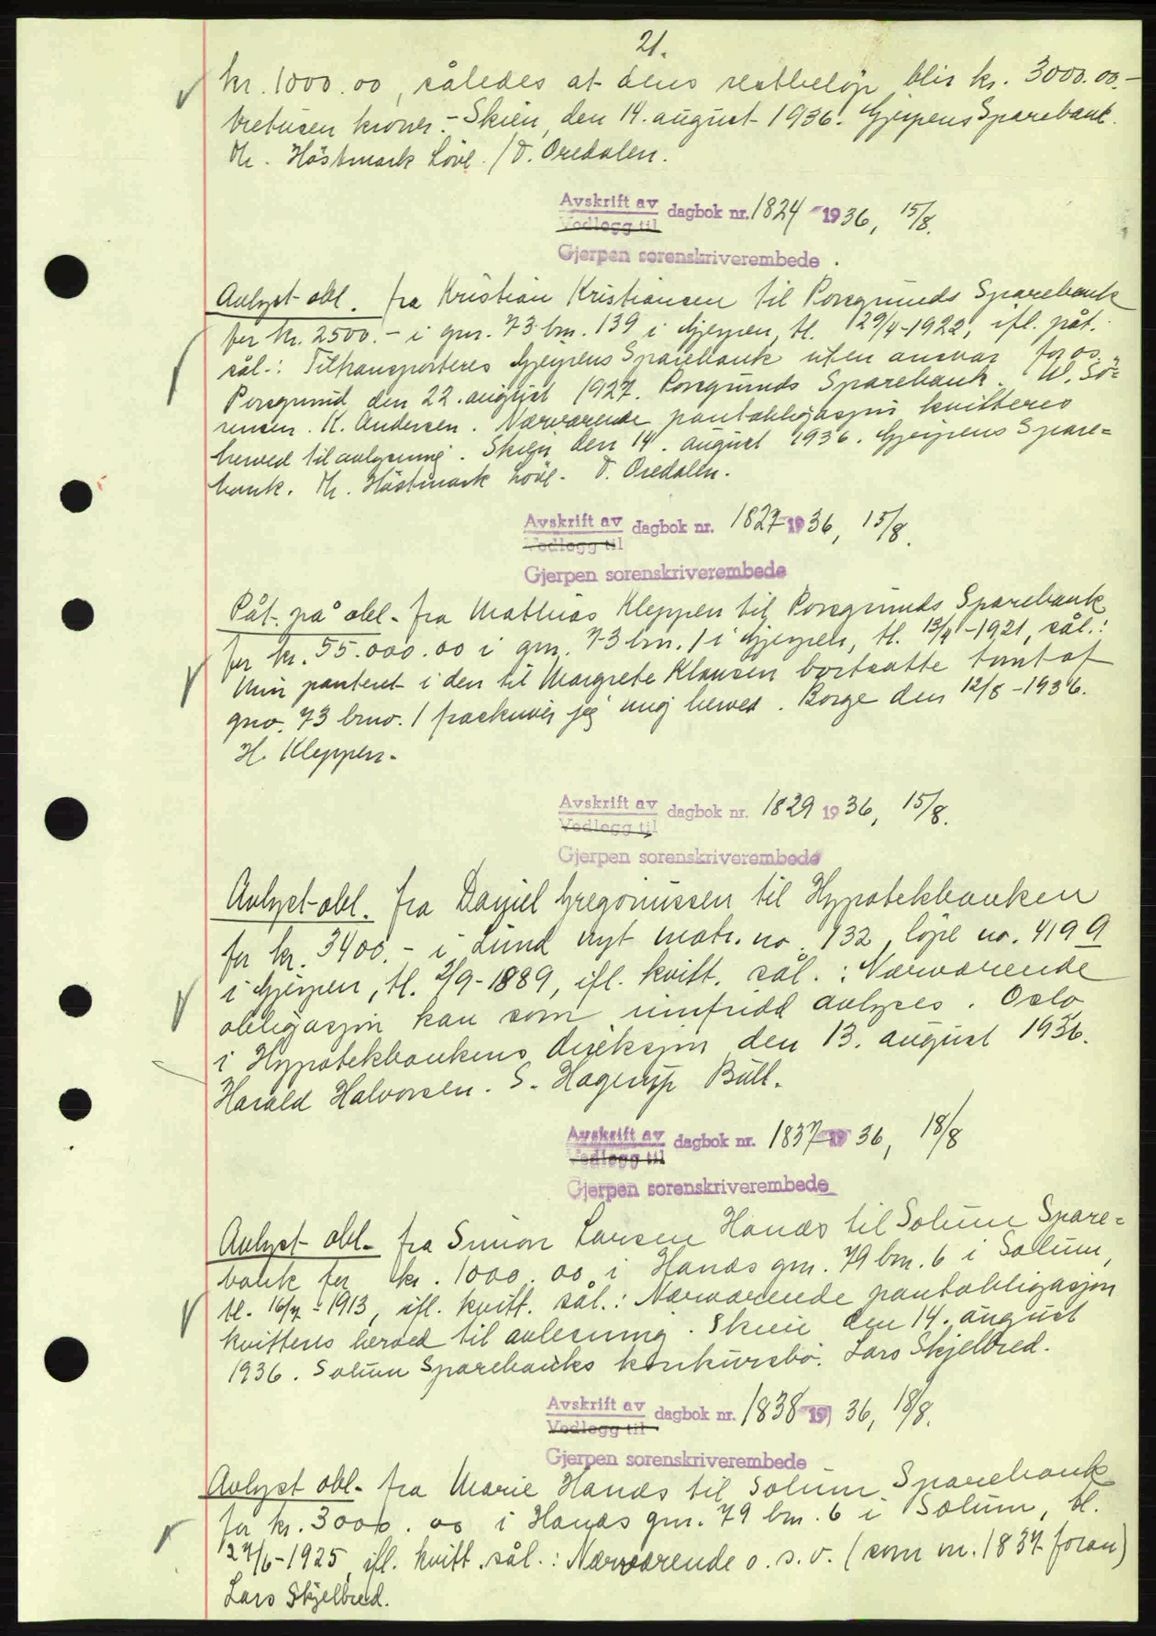 21.
kr. 1000.00, således at dens restbeløp blir kr. 3000.00.-
tretusen kroner.- Skien, den 14. august 1936. Gjerpens Sparebank.
Th. Høstmark Lövl. / T. Oredalen.
Avskrift av dagbok nr. 1824 - 1936, 15/8.
Vedlegg til
Gjerpen sorenskriverembede.
Avlyst obl. fra Kristian Kristiansen til Porsgrunds Sparebank
for kr. 2500.- i gnr. 73 bnr. 139 i Gjerpen, tl. 29/4-1922, ifl. påt.
sål.: Tiltransporteres Gjerpens Sparebank uten ansvar for os.
Porsgrund den 22. august 1927. Porsgrunds Sparebank. W. Sö=
rensen. K. Andersen. Nærværende pantobligasjon kvitteres
herved til avlysning. Skien den 14. august 1936. Gjerpens Spare=
bank. Th. Höstmark Lövl. T. Oredalen.
Avskrift av dagbok nr. 1827 - 1936, 15/8.
Vedlegg til
Gjerpen sorenskriverembede
Påt. på obl. fra Mathias Kleppen til Porsgrunds Sparebank
for kr. 55.000.00 i gnr. 73 bnr. 1 i Gjerpen, tl. 13/4-1921, sål.:
Min panteret i den til Margrete Klausen bortsatte tomt af
gno. 73 bno. 1 fraskriver jeg mig herved. Borge den 12/8-1936.
H. Kleppen.-
Avskrift av dagbok nr. 1829 1936, 15/8.
Vedlegg til
Gjerpen sorenskriverembede
Avlyst obl. fra Daniel Gregoriussen til Hypotekbanken
for kr. 3400.- i Lund nyt matr. no. 132, löpe no. 419 9
i Gjerpen, tl. 2/9-1889, ifl. kvitt. sål.: Nærværende
obligasjon kan som innfridd avlyses. Oslo
i Hypotekbankens direksjon den 13. august 1936.
Harald Halvorsen. S. Hagerup Bull.
Avskrift av dagbok nr. 1837 - 1936, 18/8
Vedlegg til
Gjerpen sorenskriverembede
Avlyst obl. fra Simon Larsen Hanås til Solum Spare=
bank for kr. 1000.00 i Hanås gnr. 79 bnr. 6 i Solum,
tl. 16/7-1913, ifl. kvitt. sål.: Nærværende pantobligasjon
kvitteres herved til avlesning. Skien den 14. august
1936. Solum Sparebanks konkursbo. Lars Skjelbred.
Avskrift av dagbok nr. 1838 - 1936, 18/8.
Vedlegg til
Gjerpen sorenskriverembede
Avlyst obl. fra Marie Hanås til Solum Sparebank
for kr. 3000.00 i Hanås gnr. 79 bnr. 6 i Solum, tl.
27/6-1925, ifl. kvitt. sål.: Nærværende o.s.v. (som nr. 1837 foran)
Lars Skjelbred.